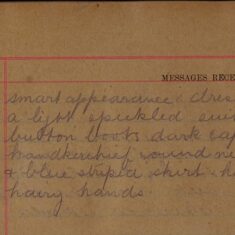 MESSAGES RECE
smart appearance & dres
a light speckled sui
button boots dark cap
handkerchief round ne
& blue striped shirt & h
hairy hands.